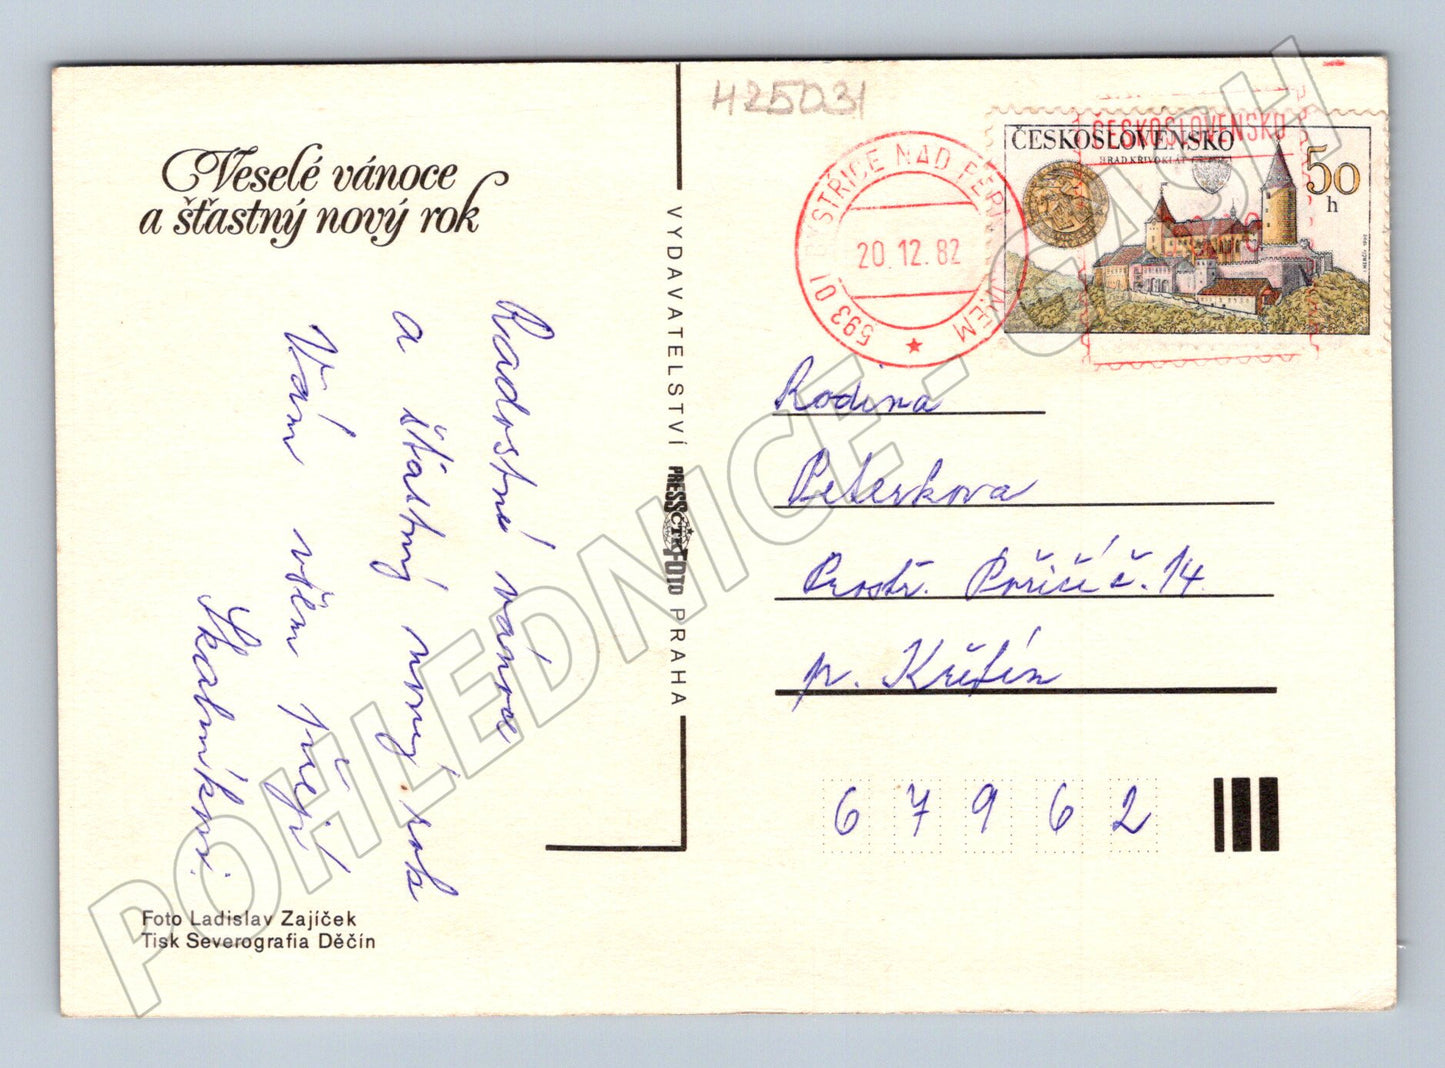 425031
Veselé vánoce
a šťastný nový rok
Radostné vánoce
a šťastný nový rok
Vám všem přejí
Skalníkovi.
VYDAVATELSTVÍ PRESSFOTO PRAHA
ČTK
Foto Ladislav Zajíček
Tisk Severografia Děčín
593 01 BYSTŘICE NAD PERNŠTEJNEM
20.12.82
ČESKOSLOVENSKO
HRAD KŘIVOKLÁT
50
h
ČESKOSLOVENSKO
Rodina
Peterkova
Prostř. Poříčí č. 14
p. Křetín
67962
POHLEDNICE.CASH